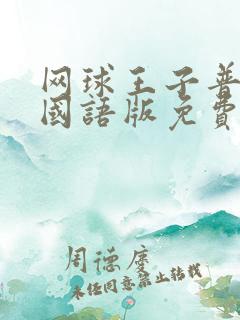 网球王子普
國語版免費
周德庆
未经同意禁止转载